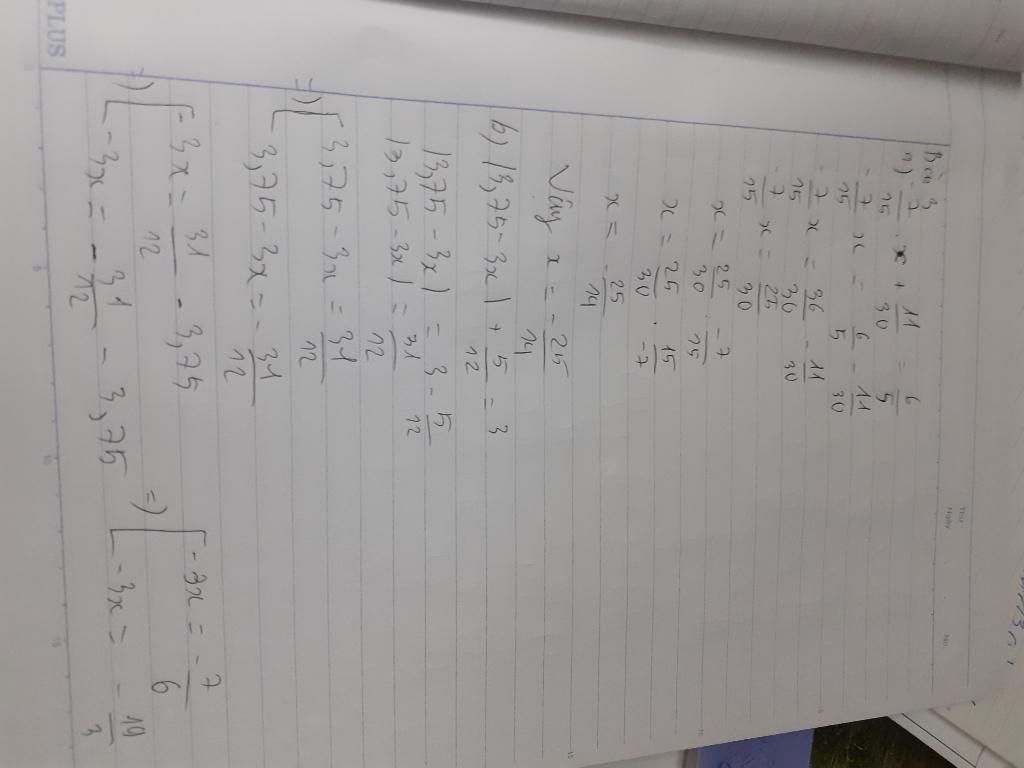 Thứ
Ngày No.
Bài 3
a) -7/15 . x + 11/30 = 6/5
-7/15 x = 6/5 - 11/30
-7/15 x = 36/30 - 11/30
-7/15 x = 25/30
x = 25/30 : -7/15
x = 25/30 . 15/-7
x = -25/14
Vậy x = -25/14
b) |3,75 - 3x| + 5/12 = 3
|3,75 - 3x| = 3 - 5/12
|3,75 - 3x| = 31/12
=> [ 3,75 - 3x = 31/12
3,75 - 3x = -31/12
=> [ -3x = 31/12 - 3,75 => [ -3x = -7/6
-3x = -31/12 - 3,75 -3x = -19/3
PLUS